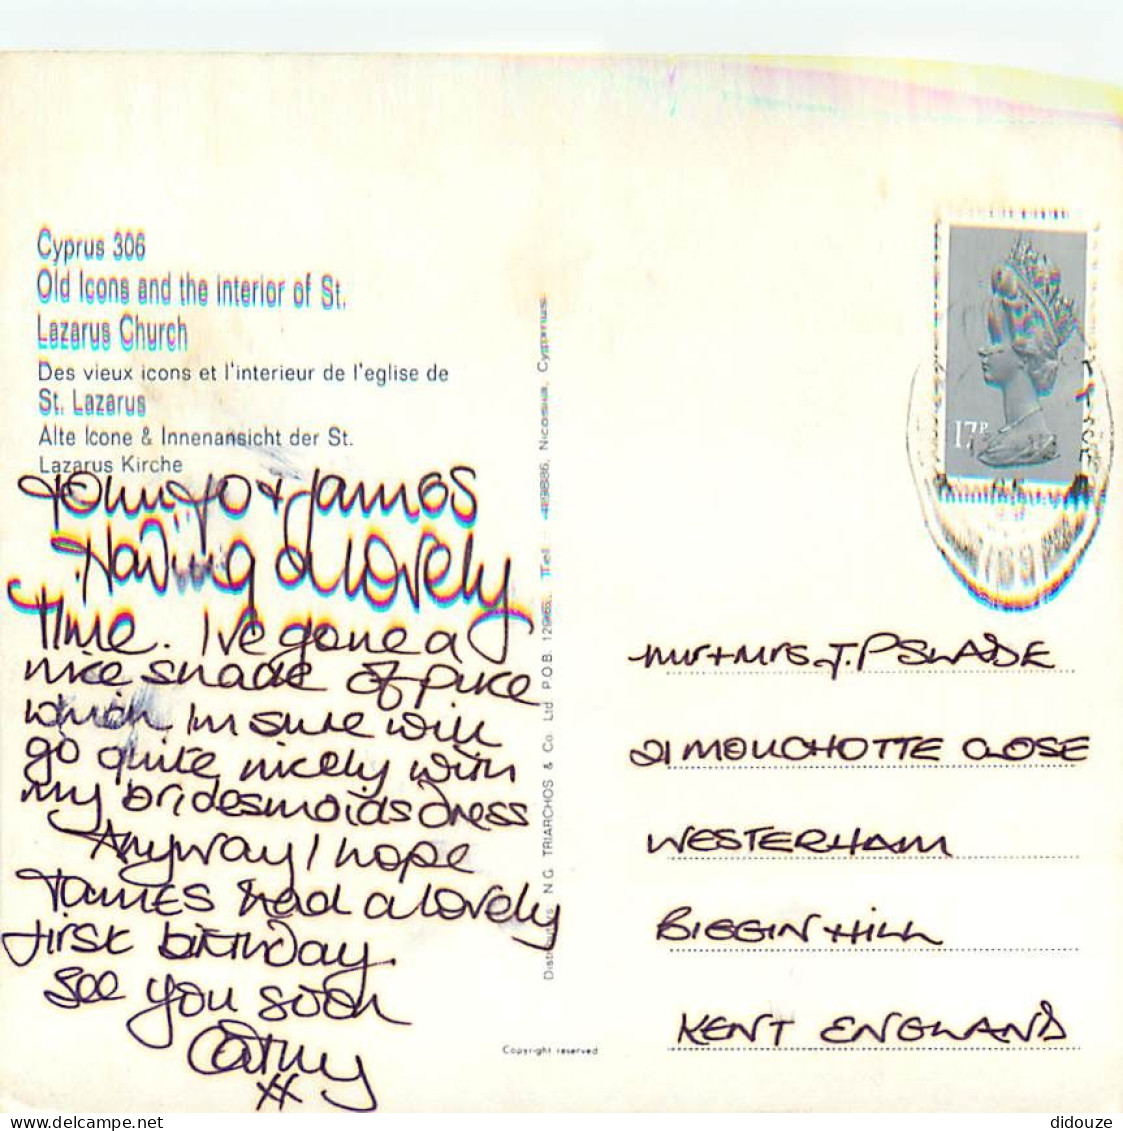 Cyprus 306
Old Icons and the interior of St.
Lazarus Church
Des vieux icons et l'interieur de l'eglise de
St. Lazarus
Alte Icone & Innenansicht der St.
Lazarus Kirche
John Jo + James
Having a lovely
time. I've gone a
nice shade of puke
which I'm sure will
go quite nicely with
my bridesmaids dress
Anyway I hope
James had a lovely
first birthday.
See you soon
Cathy
xx
N.G. TRIARCHOS & Co. Ltd. P.O.B. Nicosia, Cyprus.
Copyright reserved
17P
Mr + Mrs J.P SLADE
21 MOUCHOTTE CLOSE
WESTERHAM
BIGGIN HILL
KENT ENGLAND
didouze